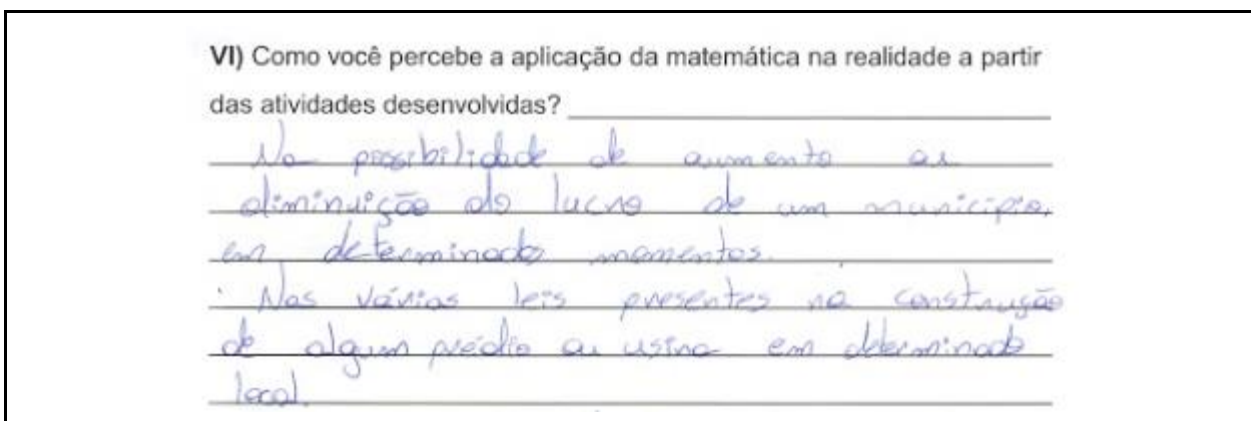 VI) Como você percebe a aplicação da matemática na realidade a partir
das atividades desenvolvidas?
Na possibilidade de aumento ou
diminuição do lucro de um município,
em determinado momentos.
Nas várias leis presentes na construção
de algum prédio ou usina em determinado
local.